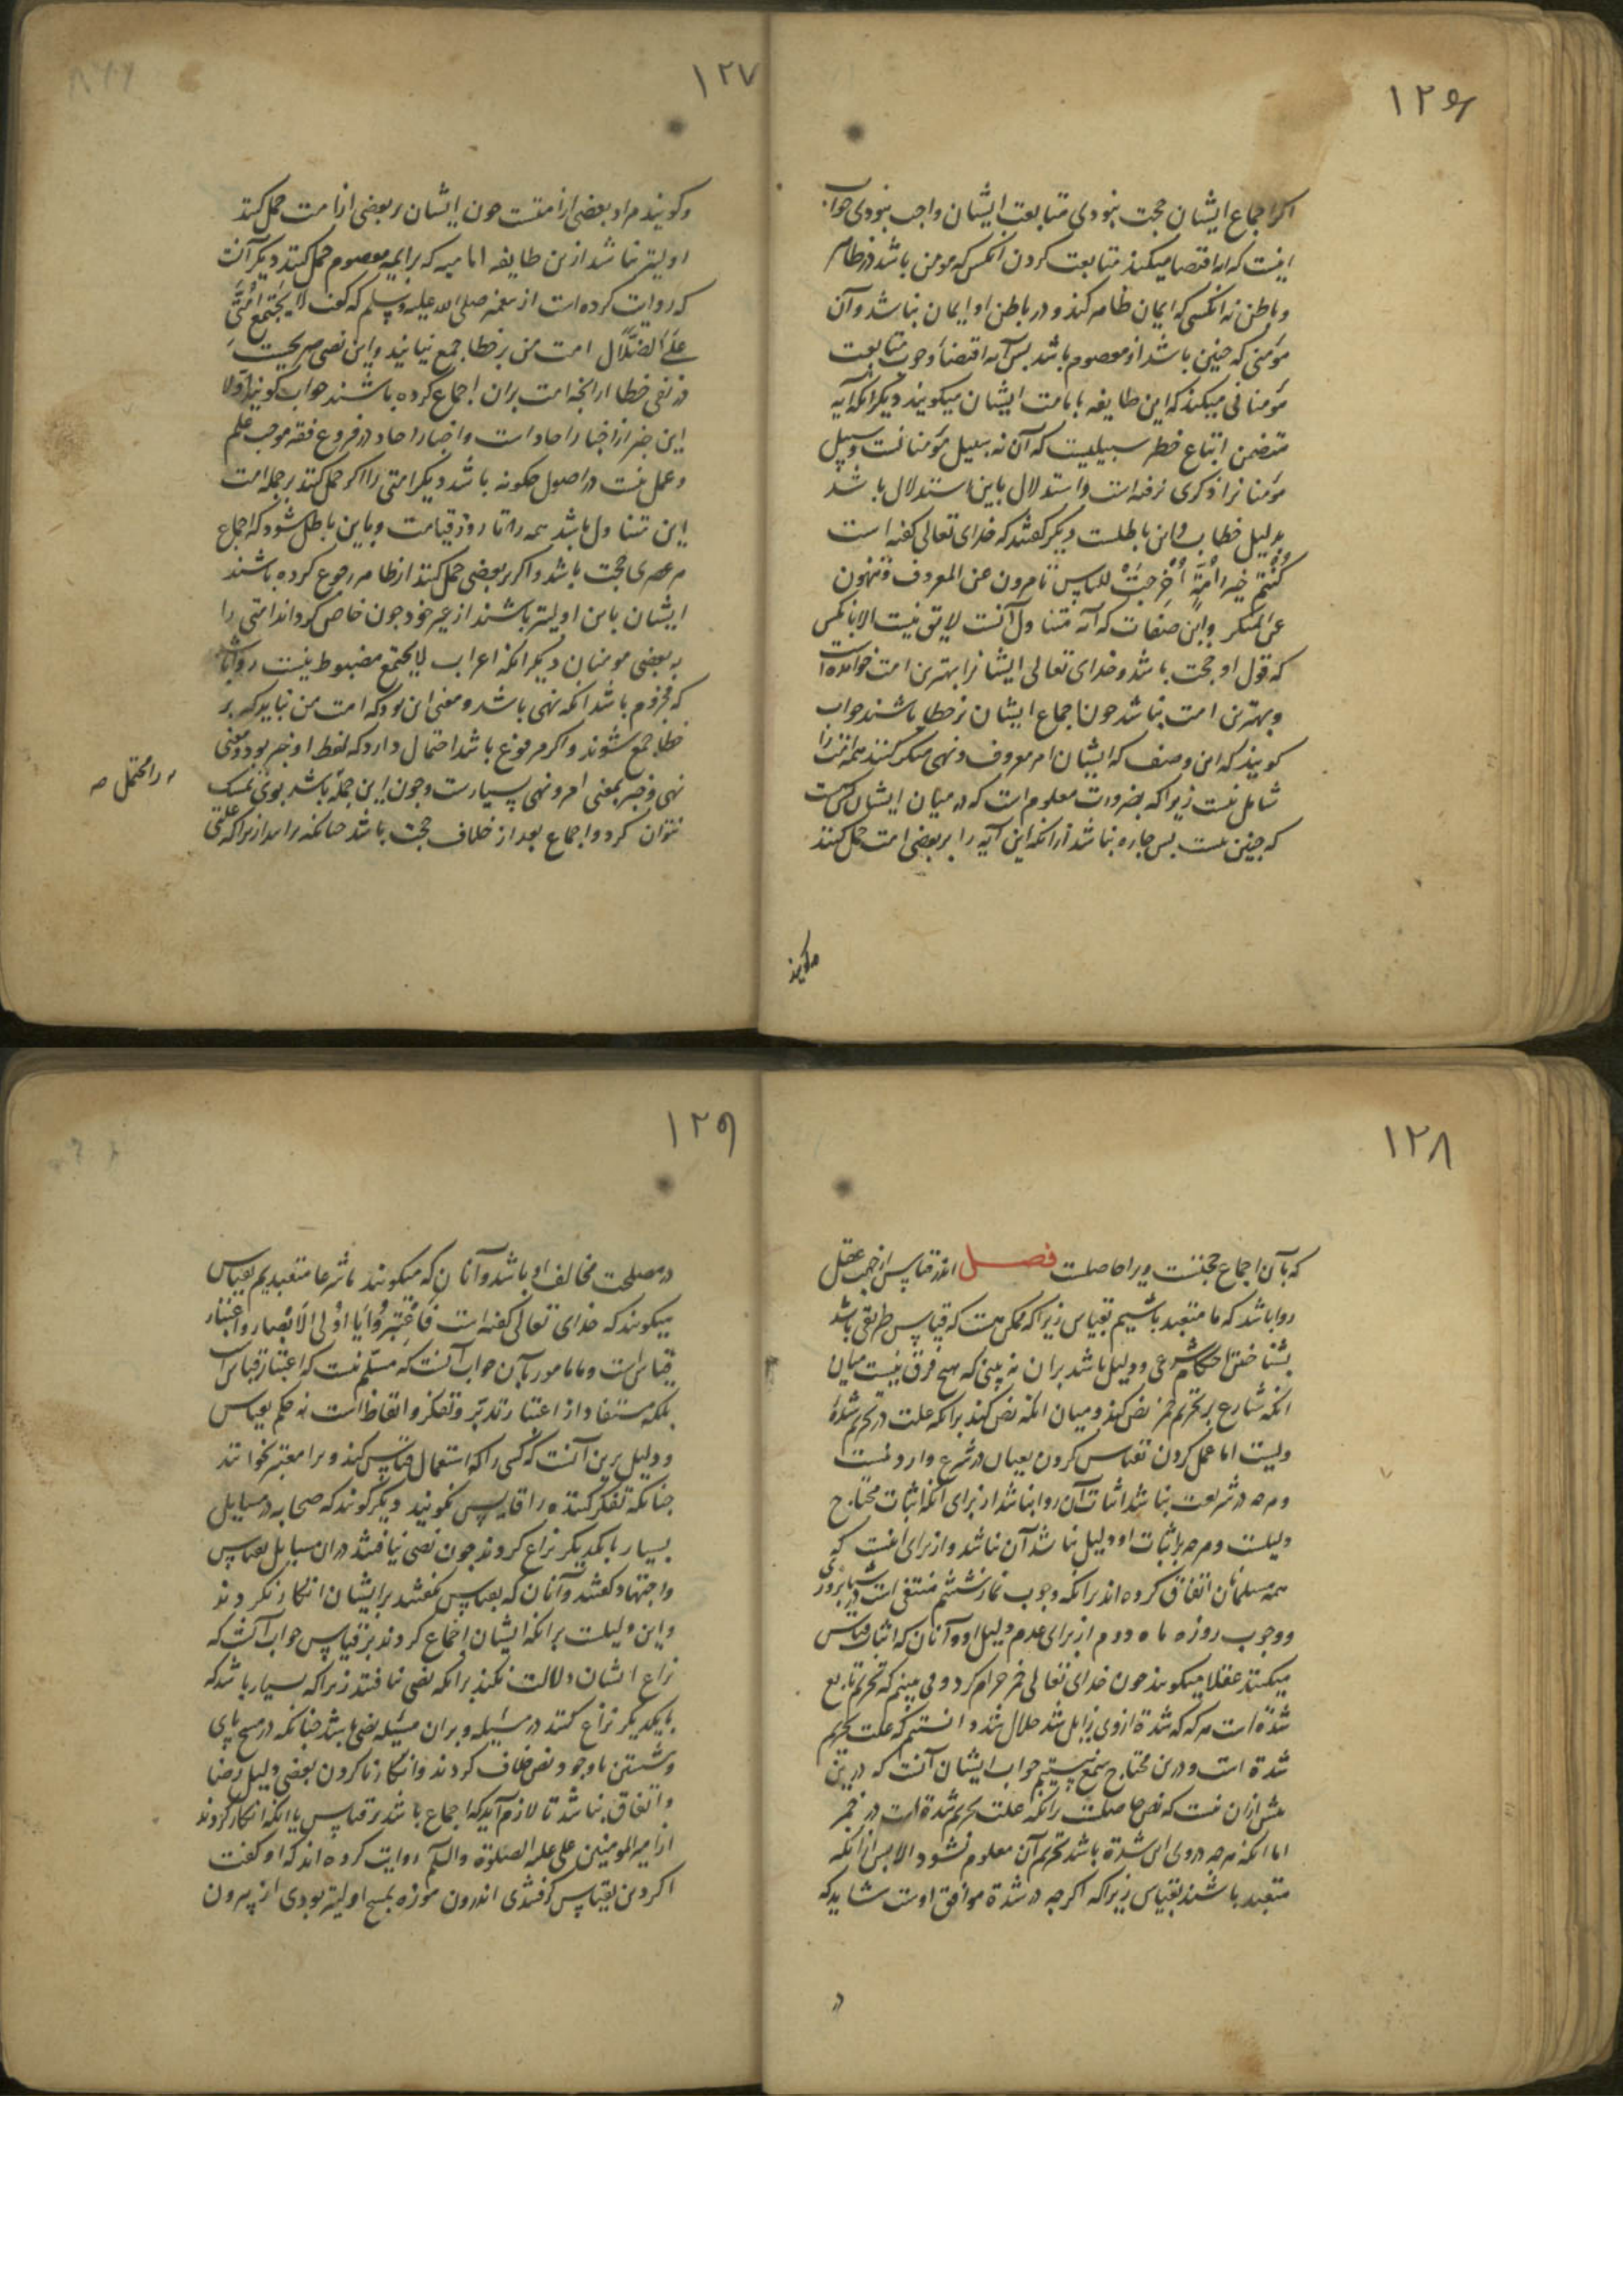 ۱۲۶
اکر اجماع ایشان حجت نبودی متابعت ایشان واجب نبودی جواب
اینست که ایه اقتضا میکند متابعت کردن انکس که مومن باشد در ظاهر
و باطن نه انکسی که ایمان ظاهر کند و در باطن او ایمان نباشد و آن
مؤمنی که چنین باشد او معصوم باشد بس آیه اقتضاء وجوب متابعت
مؤمنانی میکند که این طایفه بامامت ایشان میکویند دیکر انکه آیه
متضمن اتباع خطر سبیلیست که آن نه سبیل مؤمنانست و سبیل
مؤمنانرا ذکری نرفته است و استدلال باین استدلال باشد
بدلیل خطاب و این باطلست دیکر کفتند که خدای تعالی کفته است
کُنْتُم خیر اُمَّةٍ اُخْرِجَتْ للناس تامرون بالمعروف و تنهون
عن المنکر و این صفات که آیه متناول آنست لایق نیست الا بانکس
که قول او حجت باشد و خدای تعالی ایشانرا بهترین امت خوانده است
و بهترین امت نباشد چون اجماع ایشان بر خطا باشند جواب
کویند که این وصف که ایشان امر معروف و نهی منکر کنند همه امت را
شامل نیست زیرا که بضرورت معلوم است که در میان ایشان کس هست
که چنین نیست بس چاره نباشد از انکه این آیه را بر بعضی امت حمل کنند
وکویند
۱۲۷
وکویند مراد بعضی از امتست چون ایشان بر بعضی از امت حمل کنند
اولیتر نباشد ازین طایفه امامیه که بر ایمه معصوم حمل کنند دیکر آنست
که روایت کرده است از پیغمبر صلی الله علیه وسلم که کفت لا یجتمع اُمَّتی
عَلَی الضَّلَال امت من بر خطا جمع نیایند و این نصی صریحست
در نفی خطا از انچه امت بران اجماع کرده باشند جواب کویند اولا
این خبر از اخبار احاد است و اخبار احاد در فروع فقه موجب علم
و عمل نیست در اصول چکونه باشد دیکر امتی را اکر حمل کنند بر جمله امت
این متناول باشد همه را تا روز قیامت و باین باطل شود که اجماع
هر عصری حجت باشد و اکر بر بعضی حمل کنند از ظاهر رجوع کرده باشند
ایشان باین اولیتر باشند از غیر خود چون خاص کرداند امتی را
به بعضی مومنان دیکر انکه اعراب لا یجتمع مضبوط نیست روا باشد
که مجزوم باشد انکه نهی باشد و معنی این بود که امت من نباید که بر
خطا جمع شوند و اکر مرفوع باشد احتمال دارد که لفظ او خبر بود و معنی
نهی و خبر بمعنی امر و نهی بسیارست و چون این جمله باشد بوی تمسک
نتوان کرد و اجماع بعد از خلاف حجت باشد چنانکه برابد ازیرا که علتی
۱۲۸
که بآن اجماع حجتست ویرا حاصلست فصل اندر قیاس از جهت عقل
روا باشد که ما متعبد باشیم بقیاس زیرا که ممکن هست که قیاس طریقی باشد
بشناختن احکام شرعی و دلیل باشد بران نه بینی که هیچ فرق نیست میان
انکه شارع بر تحریم خمر نص کند و میان انکه نص کند برانکه علت در تحریم شدة
ویست اما عمل کردن بقیاس کردن بعیان در شرع وارد نیست
و هرچه در شریعت نباشد اثبات آن روا نباشد از برای انکه اثبات محتاج
دلیلست و هرچه بر اثبات او دلیل نباشد آن نباشد و از برای اینست که
همه مسلمانان اتفاق کرده اند برانکه وجوب نماز ششم منتفی است در شبانروزی
و وجوب روزه ماه دوم از برای عدم دلیل او و آنان که اثبات قیاس
میکنند عقلا میکویند چون خدای تعالی خمر حرام کرد و می بینم که تحریم تابع
شدة است هر که که شدة از وی زایل شد حلال شد دانستیم که علت تحریم
شدة است و درین محتاج سمع نیستیم جواب ایشان آنست که درین
بیش ازان نیست که نص حاصلست برانکه علت تحریم شدة است در خمر
اما انکه هرچه در وی این شدة باشد تحریم آن معلوم نشود الا بس از انکه
متعبد باشند بقیاس زیرا که اکرچه در شدة موافق اوست شاید که
در
۱۲۹
در مصلحت مخالف او باشد و آنان که میکویند ما شرعا متعبدیم بقیاس
میکویند که خدای تعالی کفته است فَاعْتَبِرُوا یَا اُولِی الْاَبْصَار و اعتبار
قیاس است و ما مامور بآن جواب آنست که مسلّم نیست که اعتبار قیاس است
بلکه مستفاد از اعتبار تدبّر و تفکر و اتعاظ است نه حکم بقیاس
و دلیل برین آنست که کسی را که استعمال قیاس کند ویرا معتبر نخوانند
چنانکه تفکر کننده را قایس نکویند دیکر کویند که صحابه در مسایل
بسیار با یکدیکر نزاع کردند چون نصی نیافتند دران مسایل بقیاس
و اجتهاد کفتند و آنان که بقیاس نکفتند بر ایشان انکار نکردند
و این دلیلست برانکه ایشان اجماع کردند بر قیاس جواب آنست که
نزاع ایشان دلالت نکند برانکه نصی نیافتند زیرا که بسیار باشد که
با یکدیکر نزاع کنند در مسئله و بران مسئله نص باشد چنانکه در مسح پای
و شستن با وجود نص خلاف کردند و انکار ناکردن بعضی دلیل رضا
و اتفاق نباشد تا لازم آید که اجماع باشد بر قیاس با انکه انکار کردند
از امیر المومنین علی علیه الصلوة والسلم روایت کرده اند که او کفت
اکر دین بقیاس کرفتندی اندرون موزه بمسح اولیتر بودی از بیرون